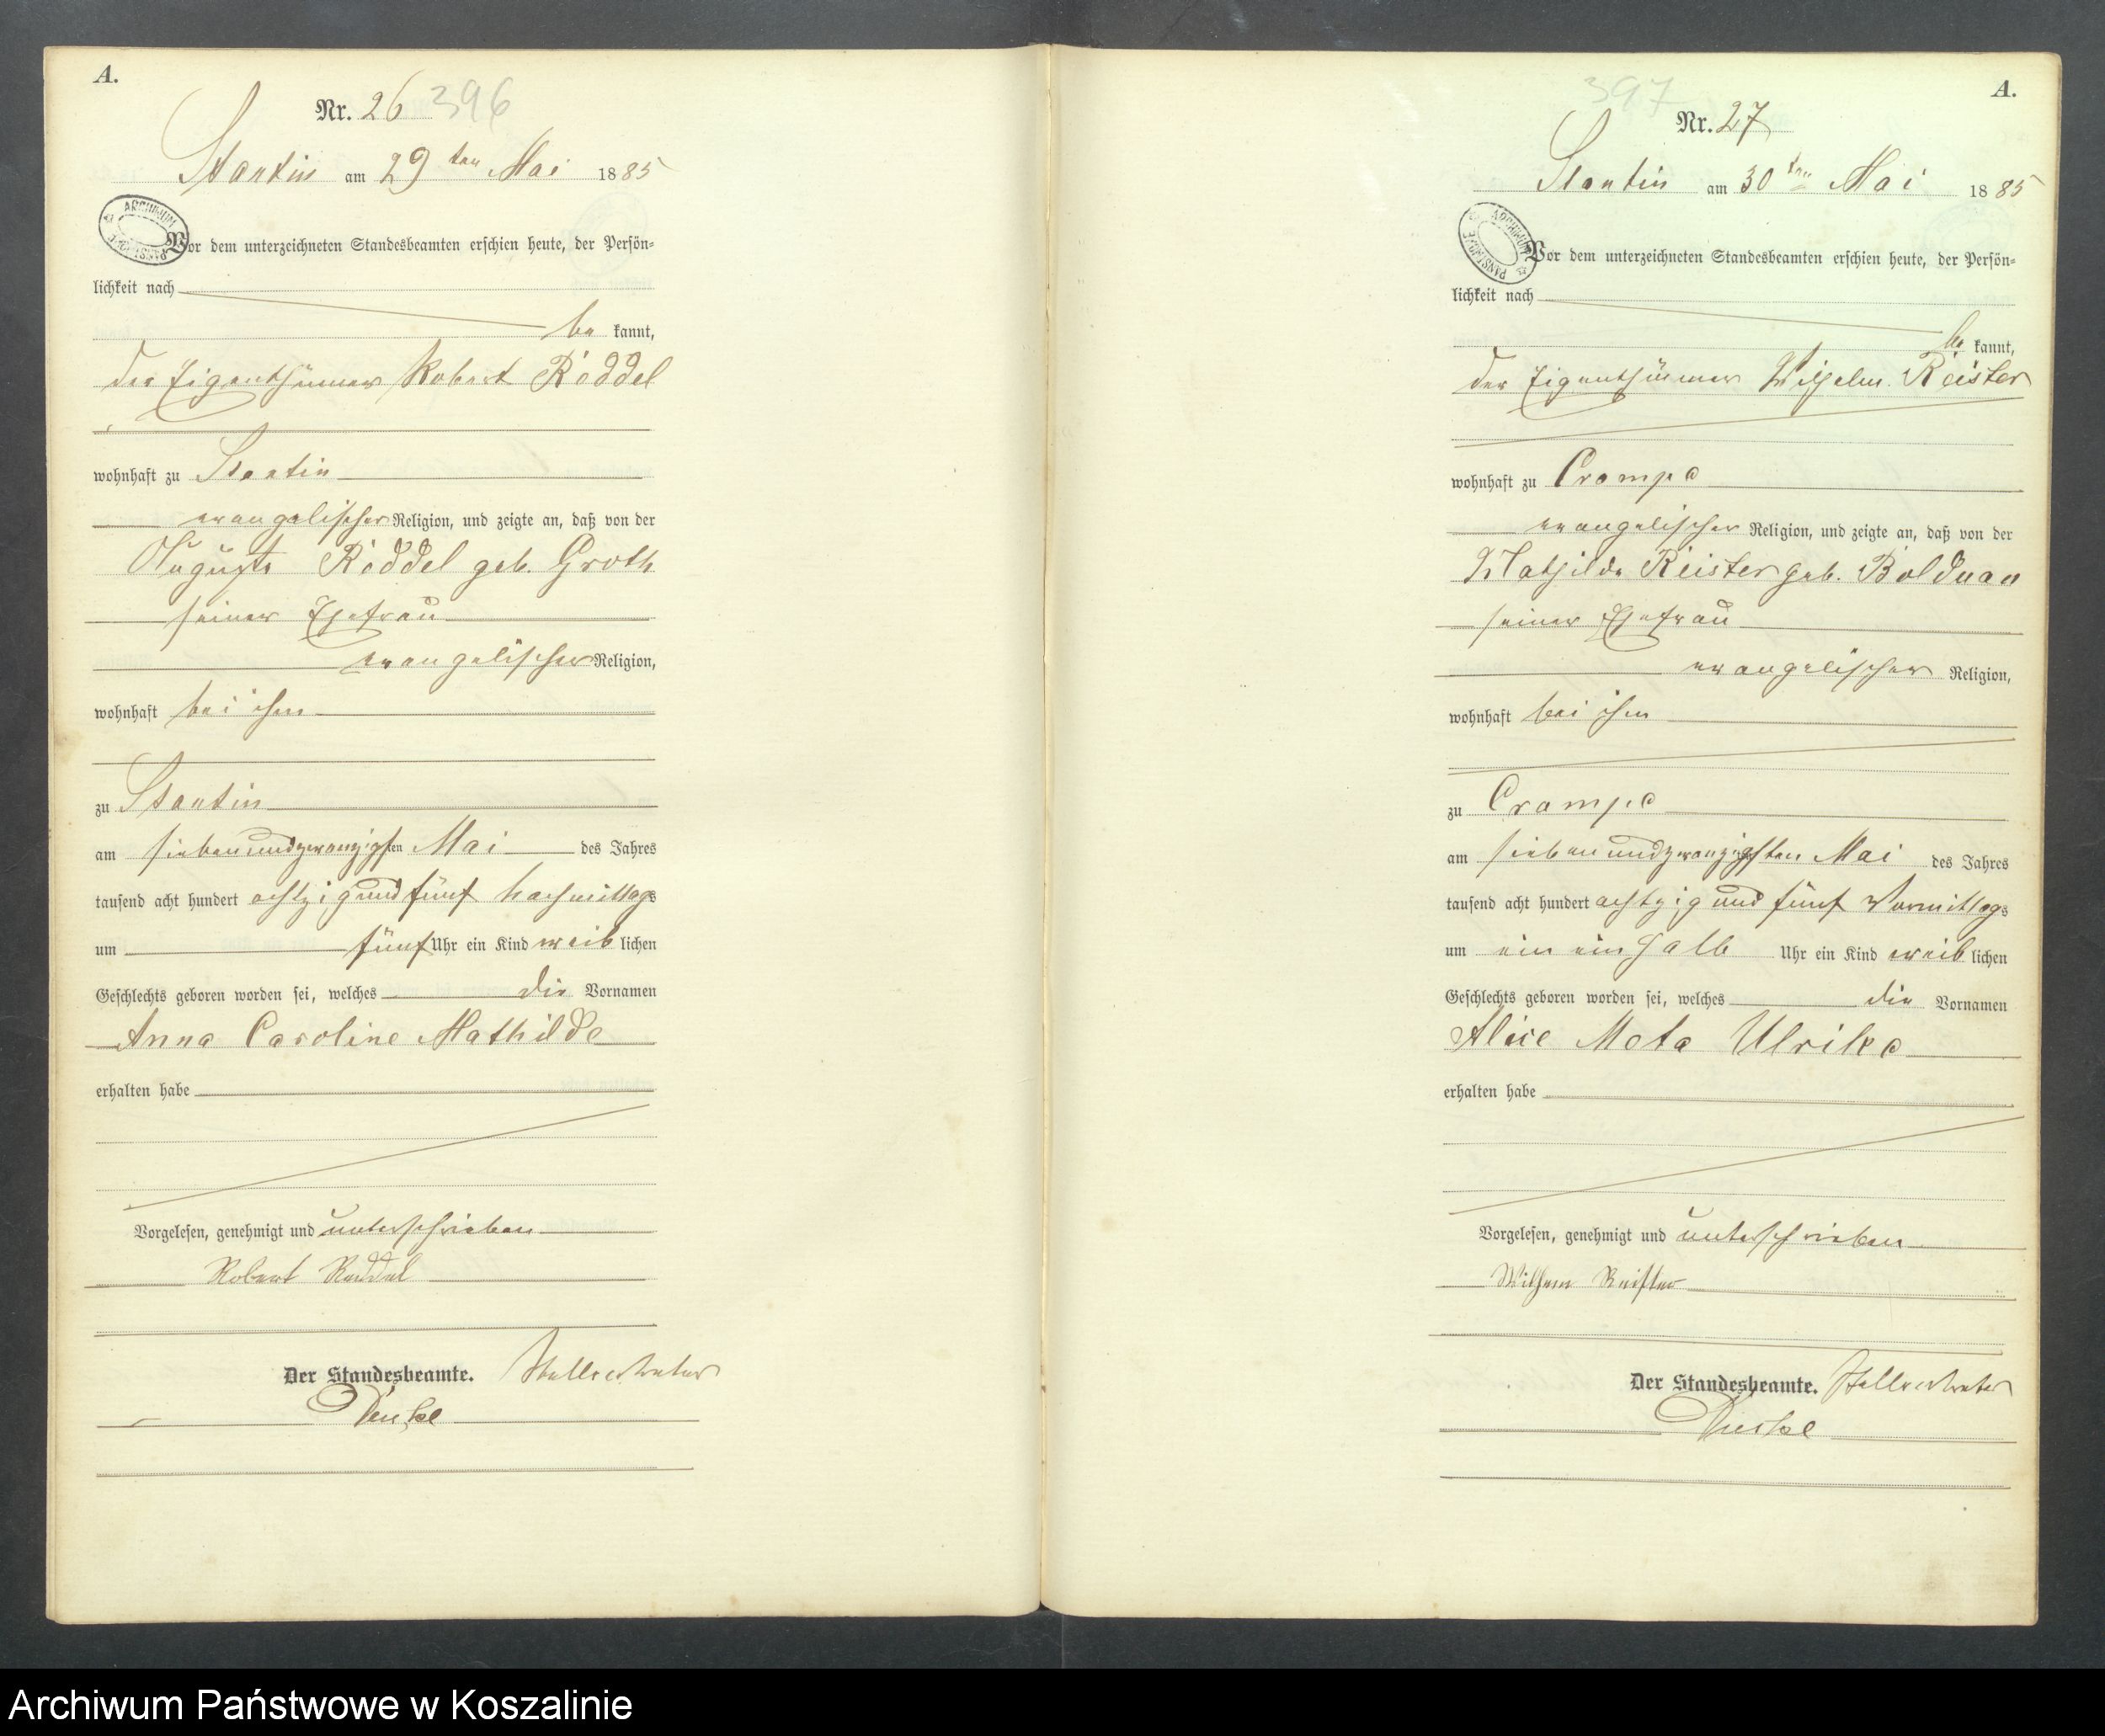 A.
Nr. 26 396
Stantin am 29ten Mai 1885
ARCHIWUM
Vor dem unterzeichneten Standesbeamten erschien heute, der Persön=
lichkeit nach
be kannt,
der Eigenthümer Robert Röddel
wohnhaft zu Stantin
evangelischer Religion, und zeigte an, daß von der
Auguste Röddel geb. Groth
seiner Ehefrau
evangelischer Religion,
wohnhaft bei ihm
zu Stantin
am siebenundzwanzigsten Mai des Jahres
tausend acht hundert achtzig und fünf Nachmittags
um fünf Uhr ein Kind weiblichen
Geschlechts geboren worden sei, welches die Vornamen
Anna Caroline Mathilde
erhalten habe
Vorgelesen, genehmigt und unterschrieben
Robert Reddel
Der Standesbeamte. Stellvertreter
A.
397
Nr. 27
Stantin am 30ten Mai 1885
ARCHIWUM PAŃSTWOWE
Vor dem unterzeichneten Standesbeamten erschien heute, der Persön=
lichkeit nach
be kannt,
der Eigenthümer Wilhelm Reister
wohnhaft zu Crampe
evangelischer Religion, und zeigte an, daß von der
Mathilde Reister geb. Bolduan
seiner Ehefrau
evangelischer Religion,
wohnhaft bei ihm
zu Crampe
am siebenundzwanzigsten Mai des Jahres
tausend acht hundert achtzig und fünf Vormittags
um ein ein halb Uhr ein Kind weiblichen
Geschlechts geboren worden sei, welches die Vornamen
Alice Meta Ulrike
erhalten habe
Vorgelesen, genehmigt und unterschrieben
Wilhem Reister
Der Standesbeamte. Stellvertreter
Archiwum Państwowe w Koszalinie